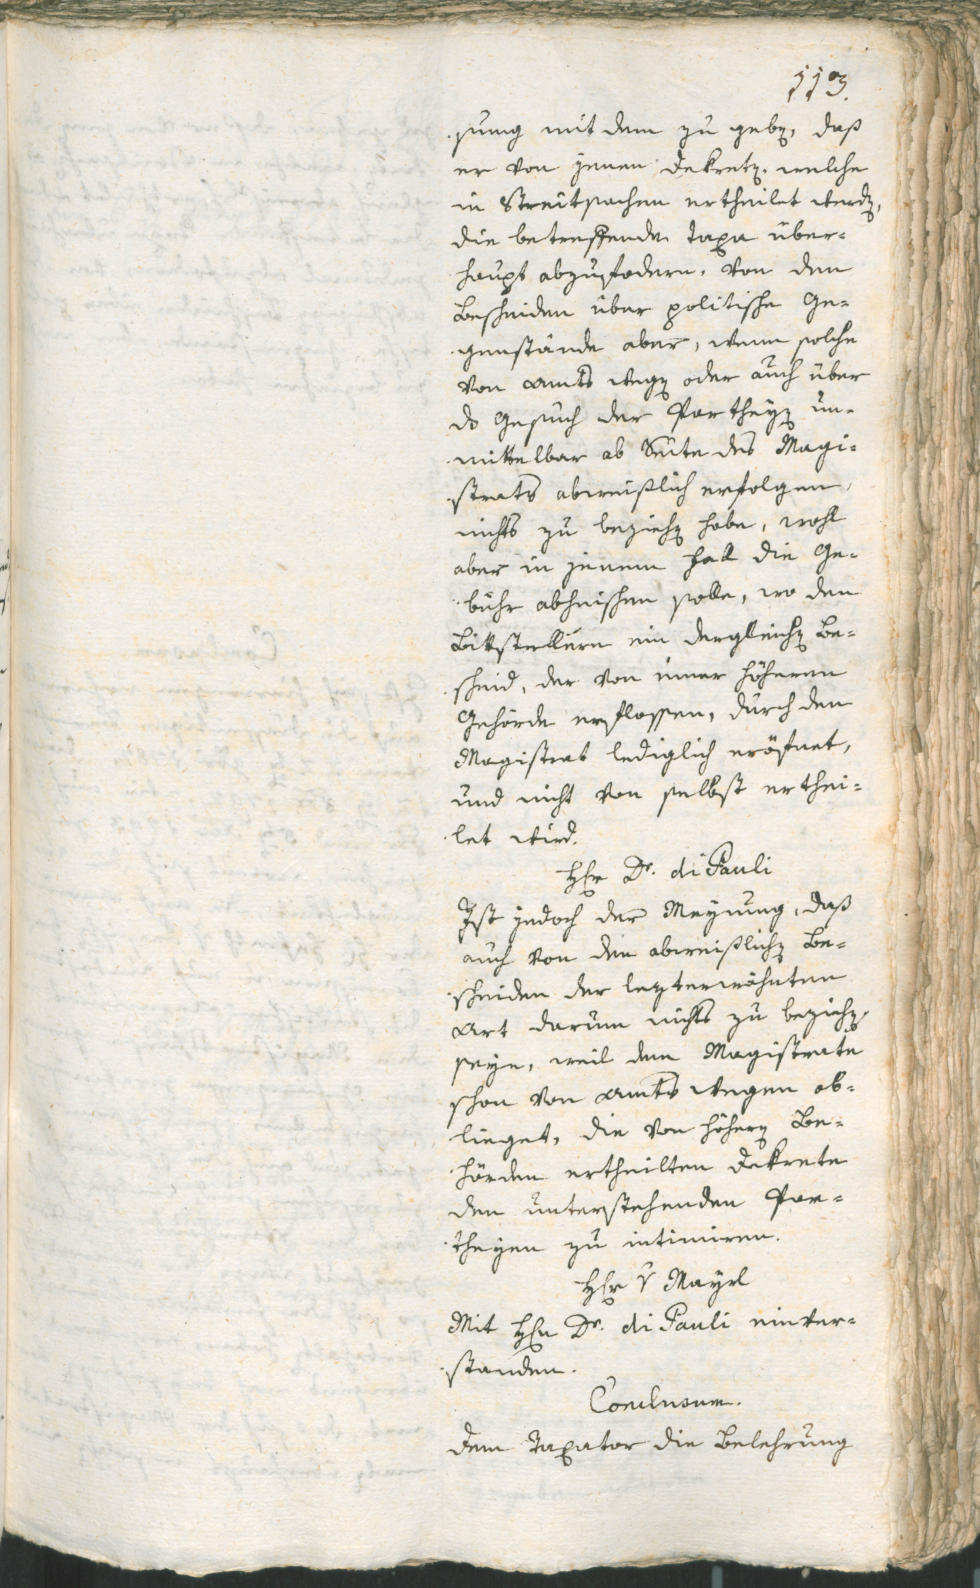 113.
sung mit dem zu geben, daß
er von jenen Dekreten welche
in Streitsachen ertheilet werden,
die betreffende Taxa über-
haupt abzufodern, von den
Bescheiden über politische Ge-
genstände aber, wenn solche
von Amts wegen oder auch über
das Gesuch der Partheyen un-
mittelbar ab Seite des Magi-
strats abweißlich erfolgen,
nichts zu beziehen habe, wohl
aber in jenem Fall die Ge-
bühr abheischen solle, wo den
Bittstellern ein dergleichen Be-
scheid, der von einer höheren
Behörde erflossen, durch den
Magistrat lediglich eröfnet,
und nicht von selbst erthei-
let wird.
Herr Dr. di Pauli
Ist jedoch der Meynung, daß
auch von den abweißlichen Be-
scheiden der letzterwöhnten
Art darum nichts zu beziehen
seye, weil dem Magistrate
schon von Amts wegen ob-
lieget, die von höhern Be-
hörden ertheilten Dekrete
den unterstehenden Par-
theyen zu intimiren.
Herr v Mayrl
Mit Hern Dr. di Pauli einver-
standen.
Conclusum.
Dem Taxator die Belehrung